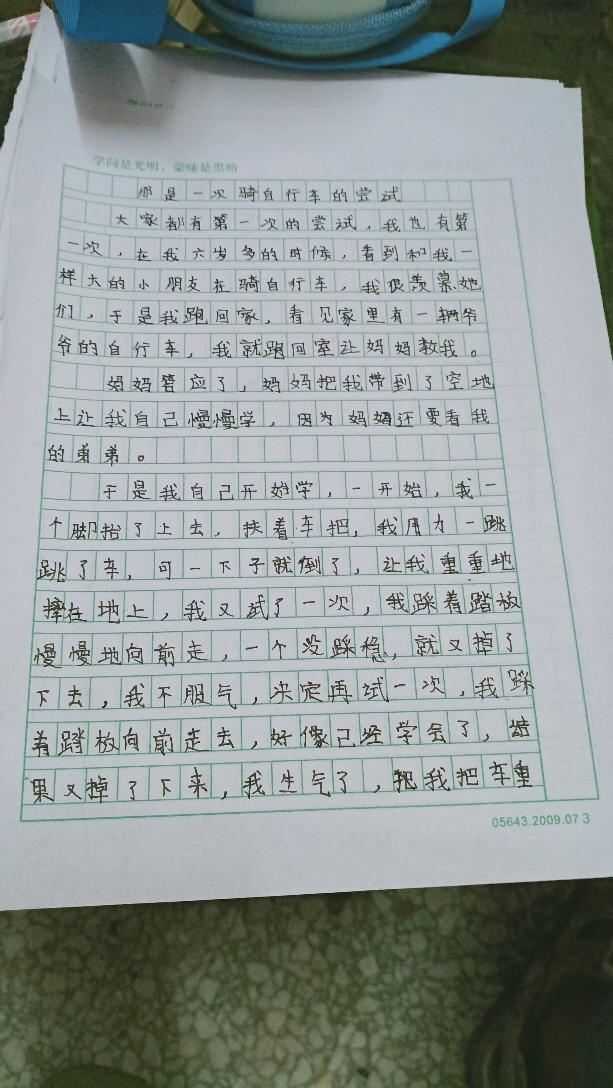 学问是光明，蒙昧是黑暗
那是一次骑自行车的尝试
大家都有第一次的尝试，我也有第
一次，在我六岁多的时候，看到和我一
样大的小朋友在骑自行车，我很羡慕她
们，于是我跑回家，看见家里有一辆爷
爷的自行车，我就跑回室让妈妈教我。
妈妈答应了，妈妈把我带到了空地
上让我自己慢慢学，因为妈妈还要看我
的弟弟。
于是我自己开始学，一开始，我一
个脚抬了上去，扶着车把，我用力一跳
跳了车，可一下子就倒了，让我重重地
摔在地上，我又试了一次，我踩着踏板
慢慢地向前走，一个没踩稳，就又掉了
下去，我不服气，决定再试一次，我踩
着踏板向前走去，好像已经学会了，结
果又掉了下来，我生气了，把我把车重
05643.2009.07 3